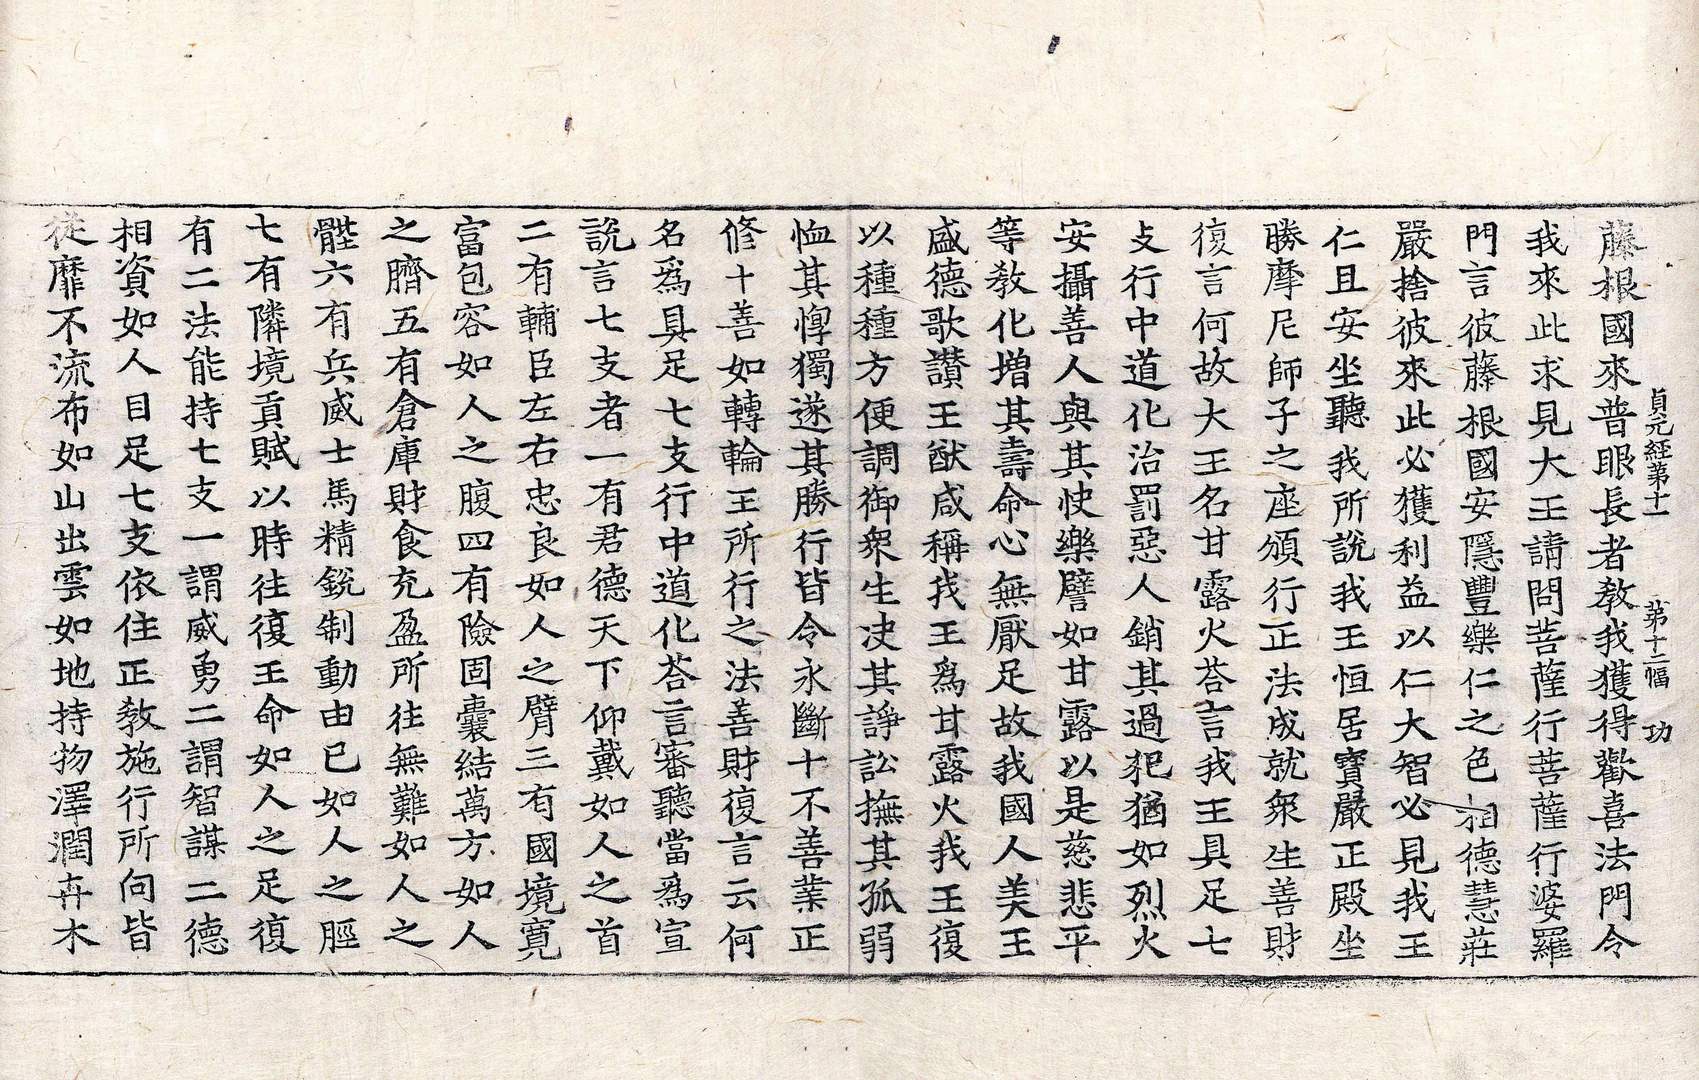 貞元經第十一 第十二幅 功
藤根國來普眼長者教我獲得歡喜法門令
我來此求見大王請問菩薩行菩薩行婆羅
門言彼藤根國安隱豐樂仁之色相德慧莊
嚴捨彼來此必獲利益以仁大智必見我王
仁且安坐聽我所說我王恒居寶嚴正殿坐
勝摩尼師子之座頒行正法成就衆生善財
復言何故大王名甘露火荅言我王具足七
支行中道化治罰惡人銷其過犯猶如烈火
安攝善人與其快樂譬如甘露以是慈悲平
等教化增其壽命心無厭足故我國人美王
盛德歌讃王猷咸稱我王爲甘露火我王復
以種種方便調御衆生决其諍訟撫其孤弱
恤其惸獨遂其勝行皆令永斷十不善業正
修十善如轉輪王所行之法善財復言云何
名爲具足七支行中道化荅言審聽當爲宣
說言七支者一有君德天下仰戴如人之首
二有輔臣左右忠良如人之臂三有國境寬
富包容如人之腹四有險固囊結萬方如人
之臍五有倉庫財食充盈所往無難如人之
髀六有兵威士馬精銳制動由已如人之脛
七有隣境貢賦以時往復王命如人之足復
有二法能持七支一謂威勇二謂智謀二德
相資如人目足七支依住正教施行所向皆
從靡不流布如山出雲如地持物澤潤卉木